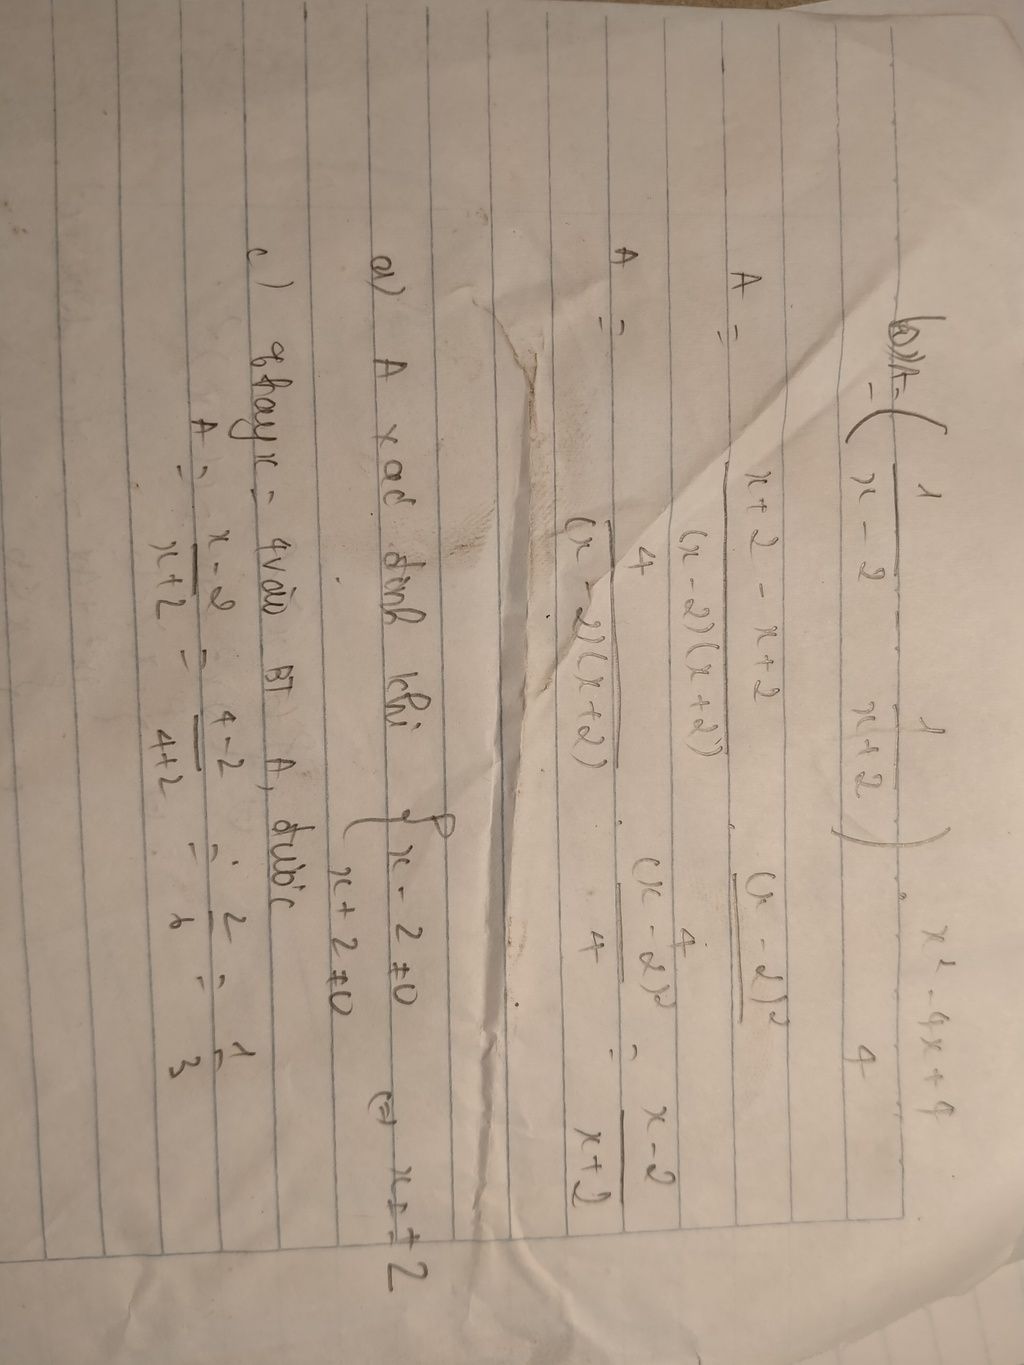 b) A = ( 1/(x - 2) - 1/(x + 2) ) . (x² - 4x + 4)/4
A = (x + 2 - x + 2)/((x - 2)(x + 2)) . (x - 2)²/4
A = 4/((x - 2)(x + 2)) . (x - 2)²/4 = (x - 2)/(x + 2)
a) A xác định khi { x - 2 ≠ 0
x + 2 ≠ 0 (=) x = ± 2
c) Thay x = 4 vào BT A, được
A = (x - 2)/(x + 2) = (4 - 2)/(4 + 2) = 2/6 = 1/3